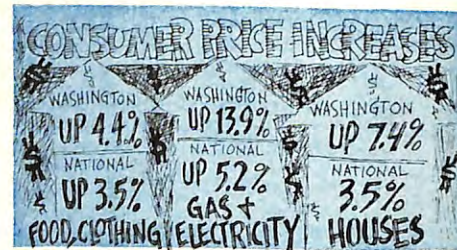 CONSUMER PRICE INCREASES
WASHINGTON
UP 4.4%
NATIONAL
UP 3.5%
FOOD, CLOTHING
WASHINGTON
UP 13.9%
NATIONAL
UP 5.2%
GAS +
ELECTRICITY
WASHINGTON
UP 7.4%
NATIONAL
3.5%
HOUSES